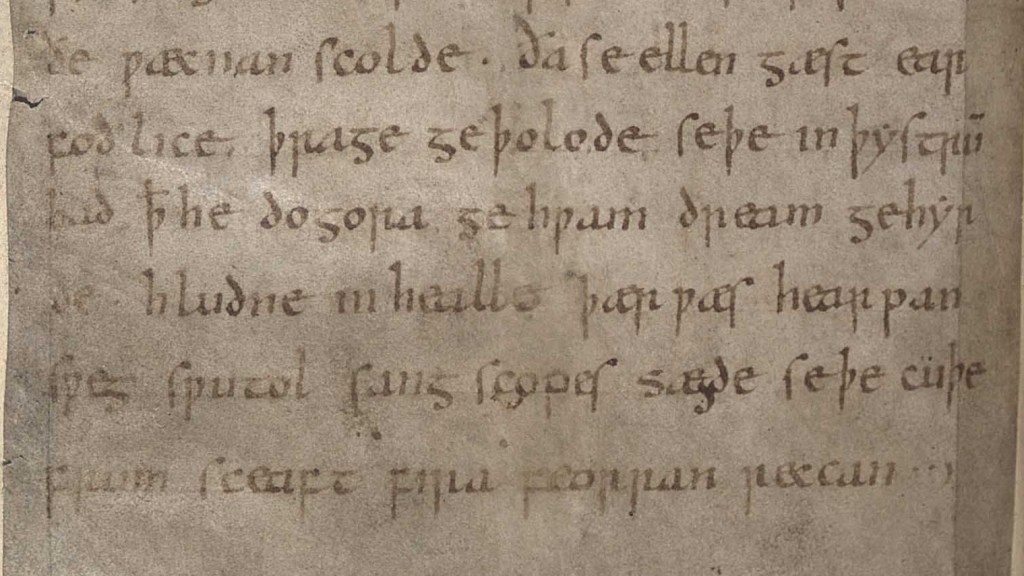 ðe wæcnan scolde. ða se ellen gæst ear
foð lice þrage geþolode seþe inþystrū
bad ꝥ he dogora ge hwam dream gehyr
de hludne in healle þær wæs hearpan
sweg swutol sang scopes sægde seþe cuþe
frum sceaft fira feorran reccan